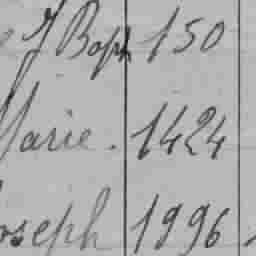 J Bapt 150
Marie. 1424
Joseph 1996